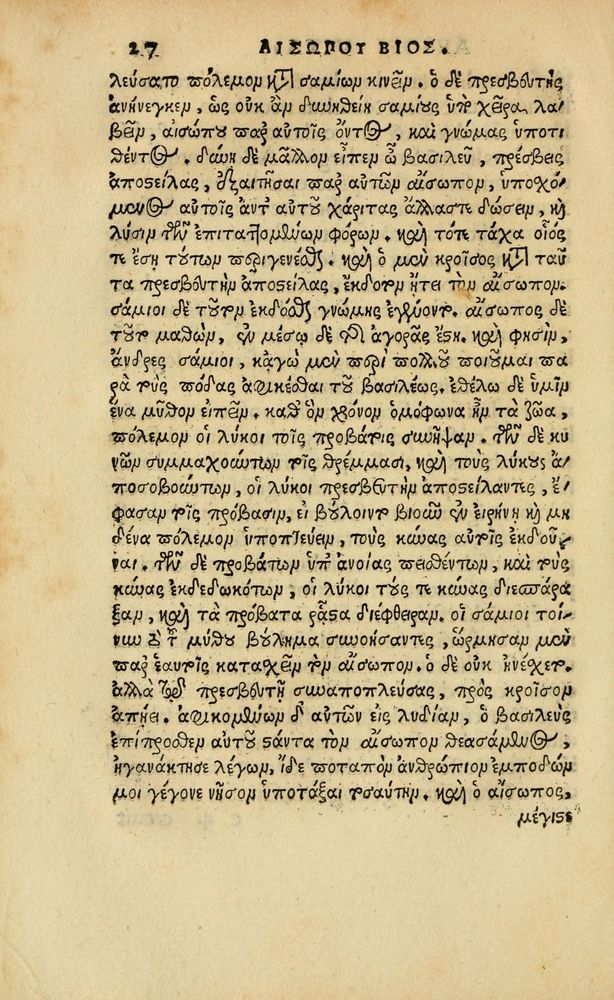 27 ΑΙΣΩΠΟΥ ΒΙΟΣ.
λεύσατο πόλεμον καὶ σαμίων κινεῖν. ὁ δὲ πρεσβευτὴς
ἀνήνεγκεν, ὡς οὐκ ἂν δυνηθείη σαμίους ὑπὸ χεῖρα λα-
βεῖν, αἰσώπου παρ' αὐτοῖς ὄντος, καὶ γνώμας ὑποτι
θέντος. δύνῃ δὲ μᾶλλον εἶπεν ὦ βασιλεῦ, πρέσβεις
ἀποστείλας, ἐξαιτῆσαι παρ' αὐτῶν αἴσωπον, ὑποσχό-
μενος αὐτοῖς ἀντ' αὐτοῦ χάριτας ἄλλας τε δώσειν, καὶ
λύσιν τῶν ἐπιταττομένων φόρων. καὶ τότε τάχα οἷός
τε ἔσῃ τούτων περιγενέσθαι. καὶ ὁ μὲν κροῖσος κατὰ ταῦ
τα πρεσβευτὴν ἀποστείλας, ἔκδοτον ᾔτει τὸν αἴσωπον.
σάμιοι δὲ τοῦτον ἐκδοῦναι γνώμης ἐγένοντο. αἴσωπος δὲ
τοῦτο μαθὼν, ἐν μέσῳ δὲ τῆς ἀγορᾶς ἔστη. καὶ φησὶν,
ἄνδρες σάμιοι, κἀγὼ μὲν περὶ πολλοῦ ποιοῦμαι πα
ρὰ τοὺς πόδας ἀφικέσθαι τοῦ βασιλέως. ἐθέλω δὲ ὑμῖν
ἕνα μῦθον εἰπεῖν. καθ' ὃν χρόνον ὁμόφωνα ἦν τὰ ζῶα,
πόλεμον οἱ λύκοι τοῖς προβάτοις συνῆψαν. τῶν δὲ κυ
νῶν συμμαχούντων τοῖς θρέμμασι, καὶ τοὺς λύκους ἀ-
ποσοβούντων, οἱ λύκοι πρεσβευτὴν ἀποστείλαντες, ἔ-
φασαν τοῖς πρόβασιν, εἰ βούλοιντο βιοῦν ἐν εἰρήνῃ καὶ μη
δένα πόλεμον ὑποπτεύειν, τοὺς κύνας αὐτοῖς ἐκδοῦ-
ναι. τῶν δὲ προβάτων ὑπ' ἀνοίας πεισθέντων, καὶ τοὺς
κύνας ἐκδεδωκότων, οἱ λύκοι τούς τε κύνας διεσπάρα
ξαν, καὶ τὰ πρόβατα ῥᾷστα διέφθειραν. οἱ σάμιοι τοί-
νυν τὸ τοῦ μύθου βούλημα συνοήσαντες, ὥρμησαν μὲν
παρ' ἑαυτοῖς κατασχεῖν τὸν αἴσωπον. ὁ δὲ οὐκ ἠνέσχετο.
ἀλλὰ τῷ πρεσβευτῇ συναποπλεύσας, πρὸς κροῖσον
ἀπῄει. ἀφικομένων δ' αὐτῶν εἰς λυδίαν, ὁ βασιλεὺς
ἐπίπροσθεν αὐτοῦ στάντα τὸν αἴσωπον θεασάμενος,
ἠγανάκτησε λέγων, ἴδε ποταπὸν ἀνθρώπιον ἐμποδών
μοι γέγονε νῆσον ὑποτάξαι τοσαύτην. καὶ ὁ αἴσωπος,
μέγιστε